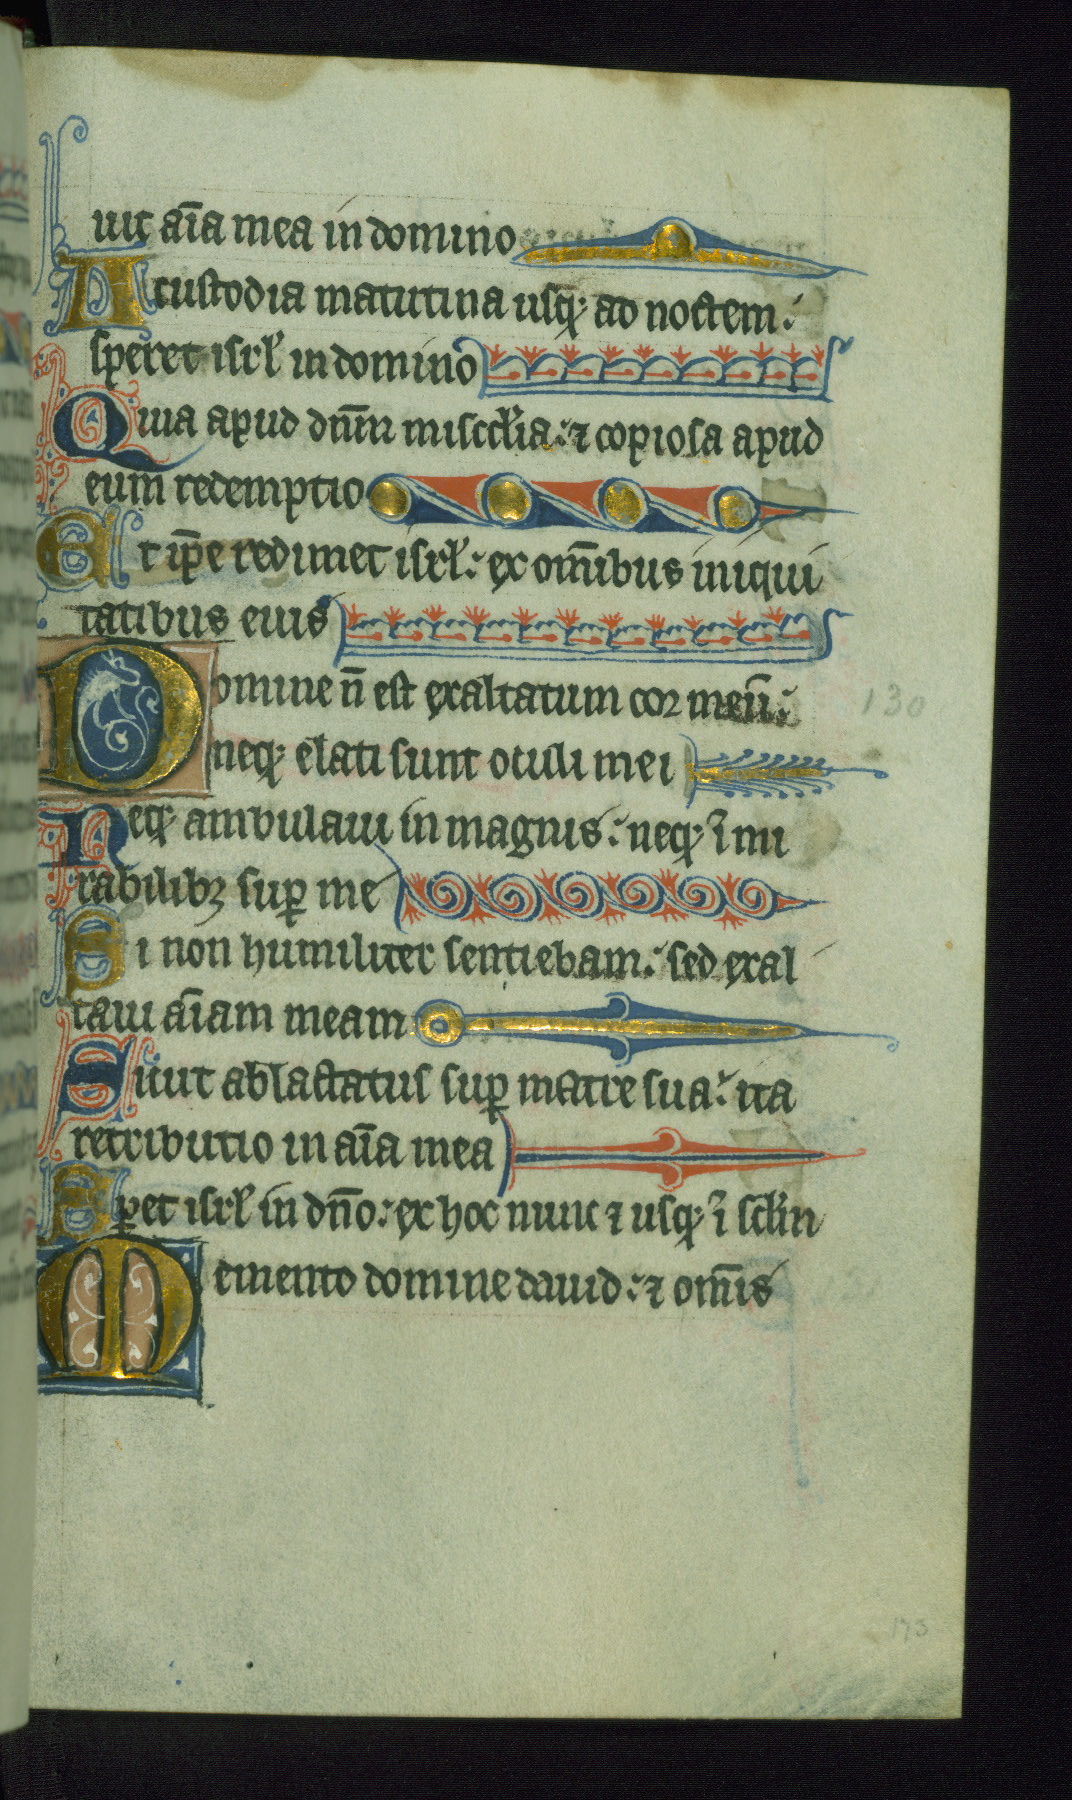 uit aīa mea in domino
A custodia matutina usq; ad noctem:
speret isrl' in domino
Quia apud dn̄m misccd'ia: ⁊ copiosa apud
eum redemptio
Et ip̄e redimet isrl': ex om̄ibus iniqui
tatibus eius
Domine n̄ est exaltatum cor meū:
130
neq; elati sunt oculi mei
Neq; ambulaui in magnis: neq; ī mi
rabilibꝫ sup̱ me
Si non humiliter sentiebam: sed exal
taui aīam meam
Sicut ablactatus sup̱ matre sua: ita
retributio in aīa mea
Sp̱et isrl' in dn̄o: ex hoc nunc ⁊ usq; ī scl'm
Memento domine dauid: ⁊ om̄is
173